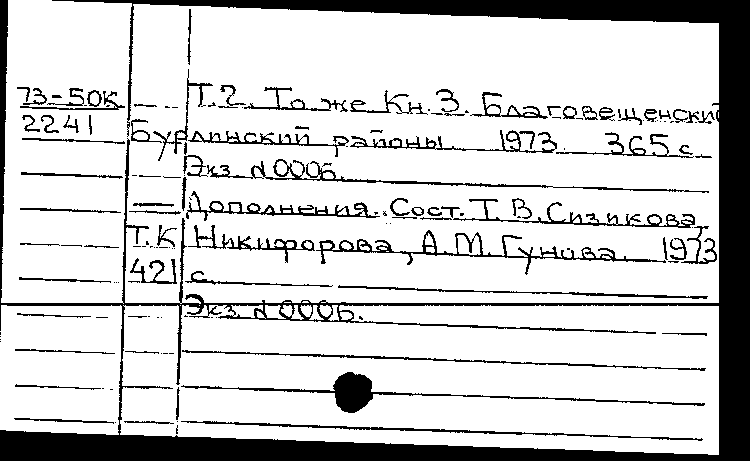 73-50К Т.2. То же Кн. 3. Благовещенский
2241 Бурлинский районы. 1973. 365 с.
Экз. № 0006.
— Дополнения. Сост. Т. В. Сизикова,
Т. К. Никифорова, А. М. Гунова. 1973
421 с.
Экз. № 0006.